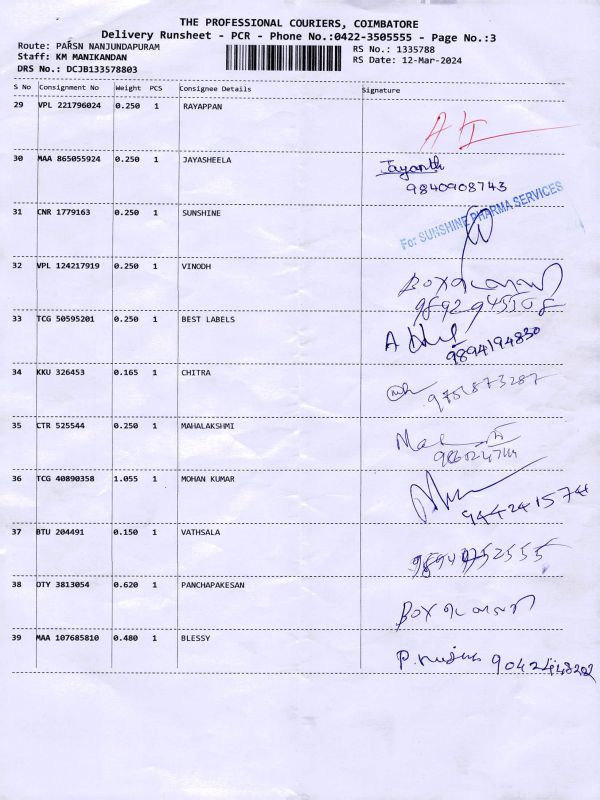 THE PROFESSIONAL COURIERS, COIMBATORE
Delivery Runsheet - PCR - Phone No.:0422-3505555 - Page No.:3
Route: PARSN NANJUNDAPURAM
RS No.: 1335788
Staff: KM MANIKANDAN
RS Date: 12-Mar-2024
DRS No.: DCJB133578803
S No Consignment No Weight PCS Consignee Details Signature
29 VPL 221796024 0.250 1 RAYAPPAN
30 MAA 865055924 0.250 1 JAYASHEELA Jayanth
9840908743
31 CNR 1779163 0.250 1 SUNSHINE For SUNSHINE PHARMA SERVICES
32 VPL 124217919 0.250 1 VINODH
9892945508
33 TCG 50595201 0.250 1 BEST LABELS
9894194830
34 KKU 326453 0.165 1 CHITRA
9751873287
35 CTR 525544 0.250 1 MAHALAKSHMI
36 TCG 40890358 1.055 1 MOHAN KUMAR
9442415741
37 BTU 204491 0.150 1 VATHSALA
38 OTY 3813054 0.620 1 PANCHAPAKESAN
39 MAA 107685810 0.480 1 BLESSY